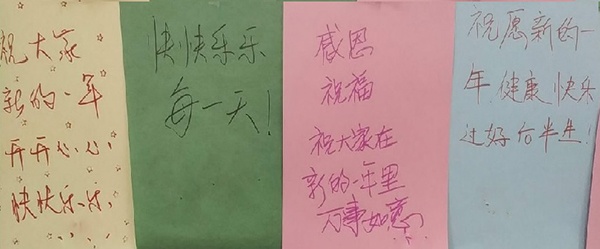 祝大家
新的一年
开开心心
快快乐乐
快快乐乐
每一天!
感恩
祝福
祝大家在
新的一年里
万事如意
祝愿新的一
年,健康快乐
过好后半生!